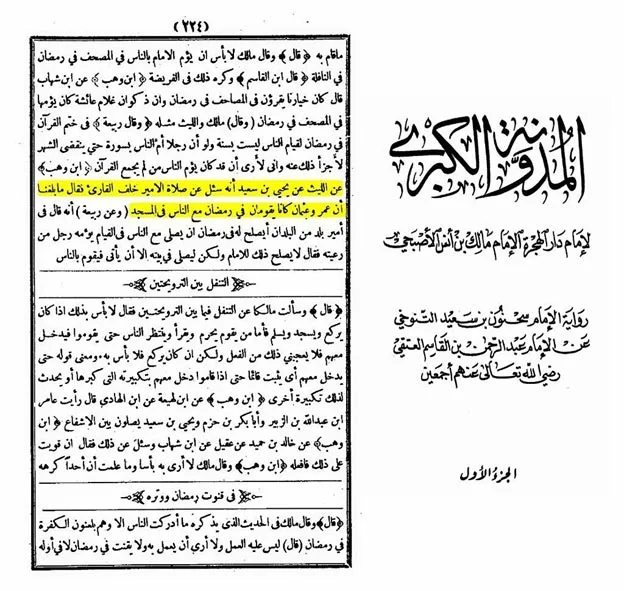 (٢٢٤)
ماقام به ﴿ قال ﴾ وقال مالك لا بأس ان يؤم الامام بالناس فى المصحف فى رمضان
فى النافلة ﴿ قال ابن القاسم ﴾ وكره ذلك فى الفريضة ﴿ ابن وهب ﴾ عن ابن شهاب
قال كان خيارنا يقرؤن فى المصاحف فى رمضان وان ذكوان غلام عائشة كان يؤمها
فى المصحف فى رمضان ( وقال ) مالك والليث مثله ﴿ وقال ربيعة ﴾ فى ختم القرآن
فى رمضان لقيام الناس ليست بسنة ولو أن رجلا أم الناس بسورة حتى ينقضى الشهر
لأجزأ ذلك عنه وانى لأرى أن قد كان يؤم الناس من لم يجمع القرآن ﴿ ابن وهب ﴾
عن الليث عن يحيى بن سعيد أنه سئل عن صلاة الامير خلف القارئ فقال ما بلغنا
أن عمر وعثمان كانا يقومان فى رمضان مع الناس فى المسجد ( وعن ربيعة ) أنه قال فى
أمير بلد من البلدان أيصلح له فى رمضان ان يصلى مع الناس فى القيام يؤمه رجل من
رعيته فقال لا يصلح ذلك للامام ولكن ليصلى فى بيته إلا أن يأتى فيقوم بالناس
التنفل بين الترويحتين
﴿ قال ﴾ وسألت مالكا عن التنفل فيما بين الترويحتين فقال لا بأس بذلك اذا كان
يركع ويسجد ويسلم فأما من يقوم يحرم ويقرأ وينتظر الناس حتى يقوموا فيدخل
معهم فلا يعجبنى ذلك من الفعل ولكن ان كان يركع فلا بأس به ومعنى قوله حتى
يدخل معهم أى يثبت قائما حتى اذا قاموا دخل معهم بتكبيرته التى كبرها أو يحدث
لذلك تكبيرة أخرى ﴿ ابن وهب ﴾ عن ابن لهيعة عن ابن الهادى قال رأيت عامر
ابن عبد الله بن الزبير وأبا بكر بن حزم ويحيى بن سعيد يصلون بين الاشفاع ﴿ ابن
وهب ﴾ عن خالد بن حميد عن عقيل عن ابن شهاب وسئل عن ذلك فقال ان قويت
على ذلك فافعله ﴿ ابن وهب ﴾ وقال مالك لا أرى به بأسا وما علمت أن أحداً كرهه
فى قنوت رمضان ووتره
﴿ قال ﴾ وقال مالك فى الحديث الذى يذكره ما أدركت الناس الا وهم يلعنون الكفرة
فى رمضان ( قال ) ليس عليه العمل ولا أرى أن يعمل به ولا يقنت فى رمضان لا فى أوله
المدونة الكبرى
لإمام دار الهجرة الإمام مالك بن أنس الأصبحي
رواية الإمام سحنون بن سعيد التنوخي
عن الإمام عبد الرحمن بن القاسم العتقي
رضي الله تعالى عنهم أجمعين
الجزء الأول